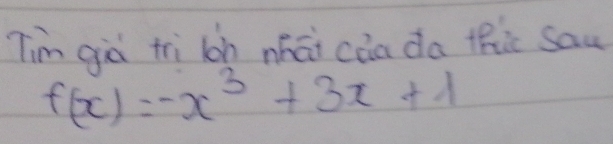 Tìm giá trị lớn nhất của đa thức sau
f(x) = -x³ + 3x + 1